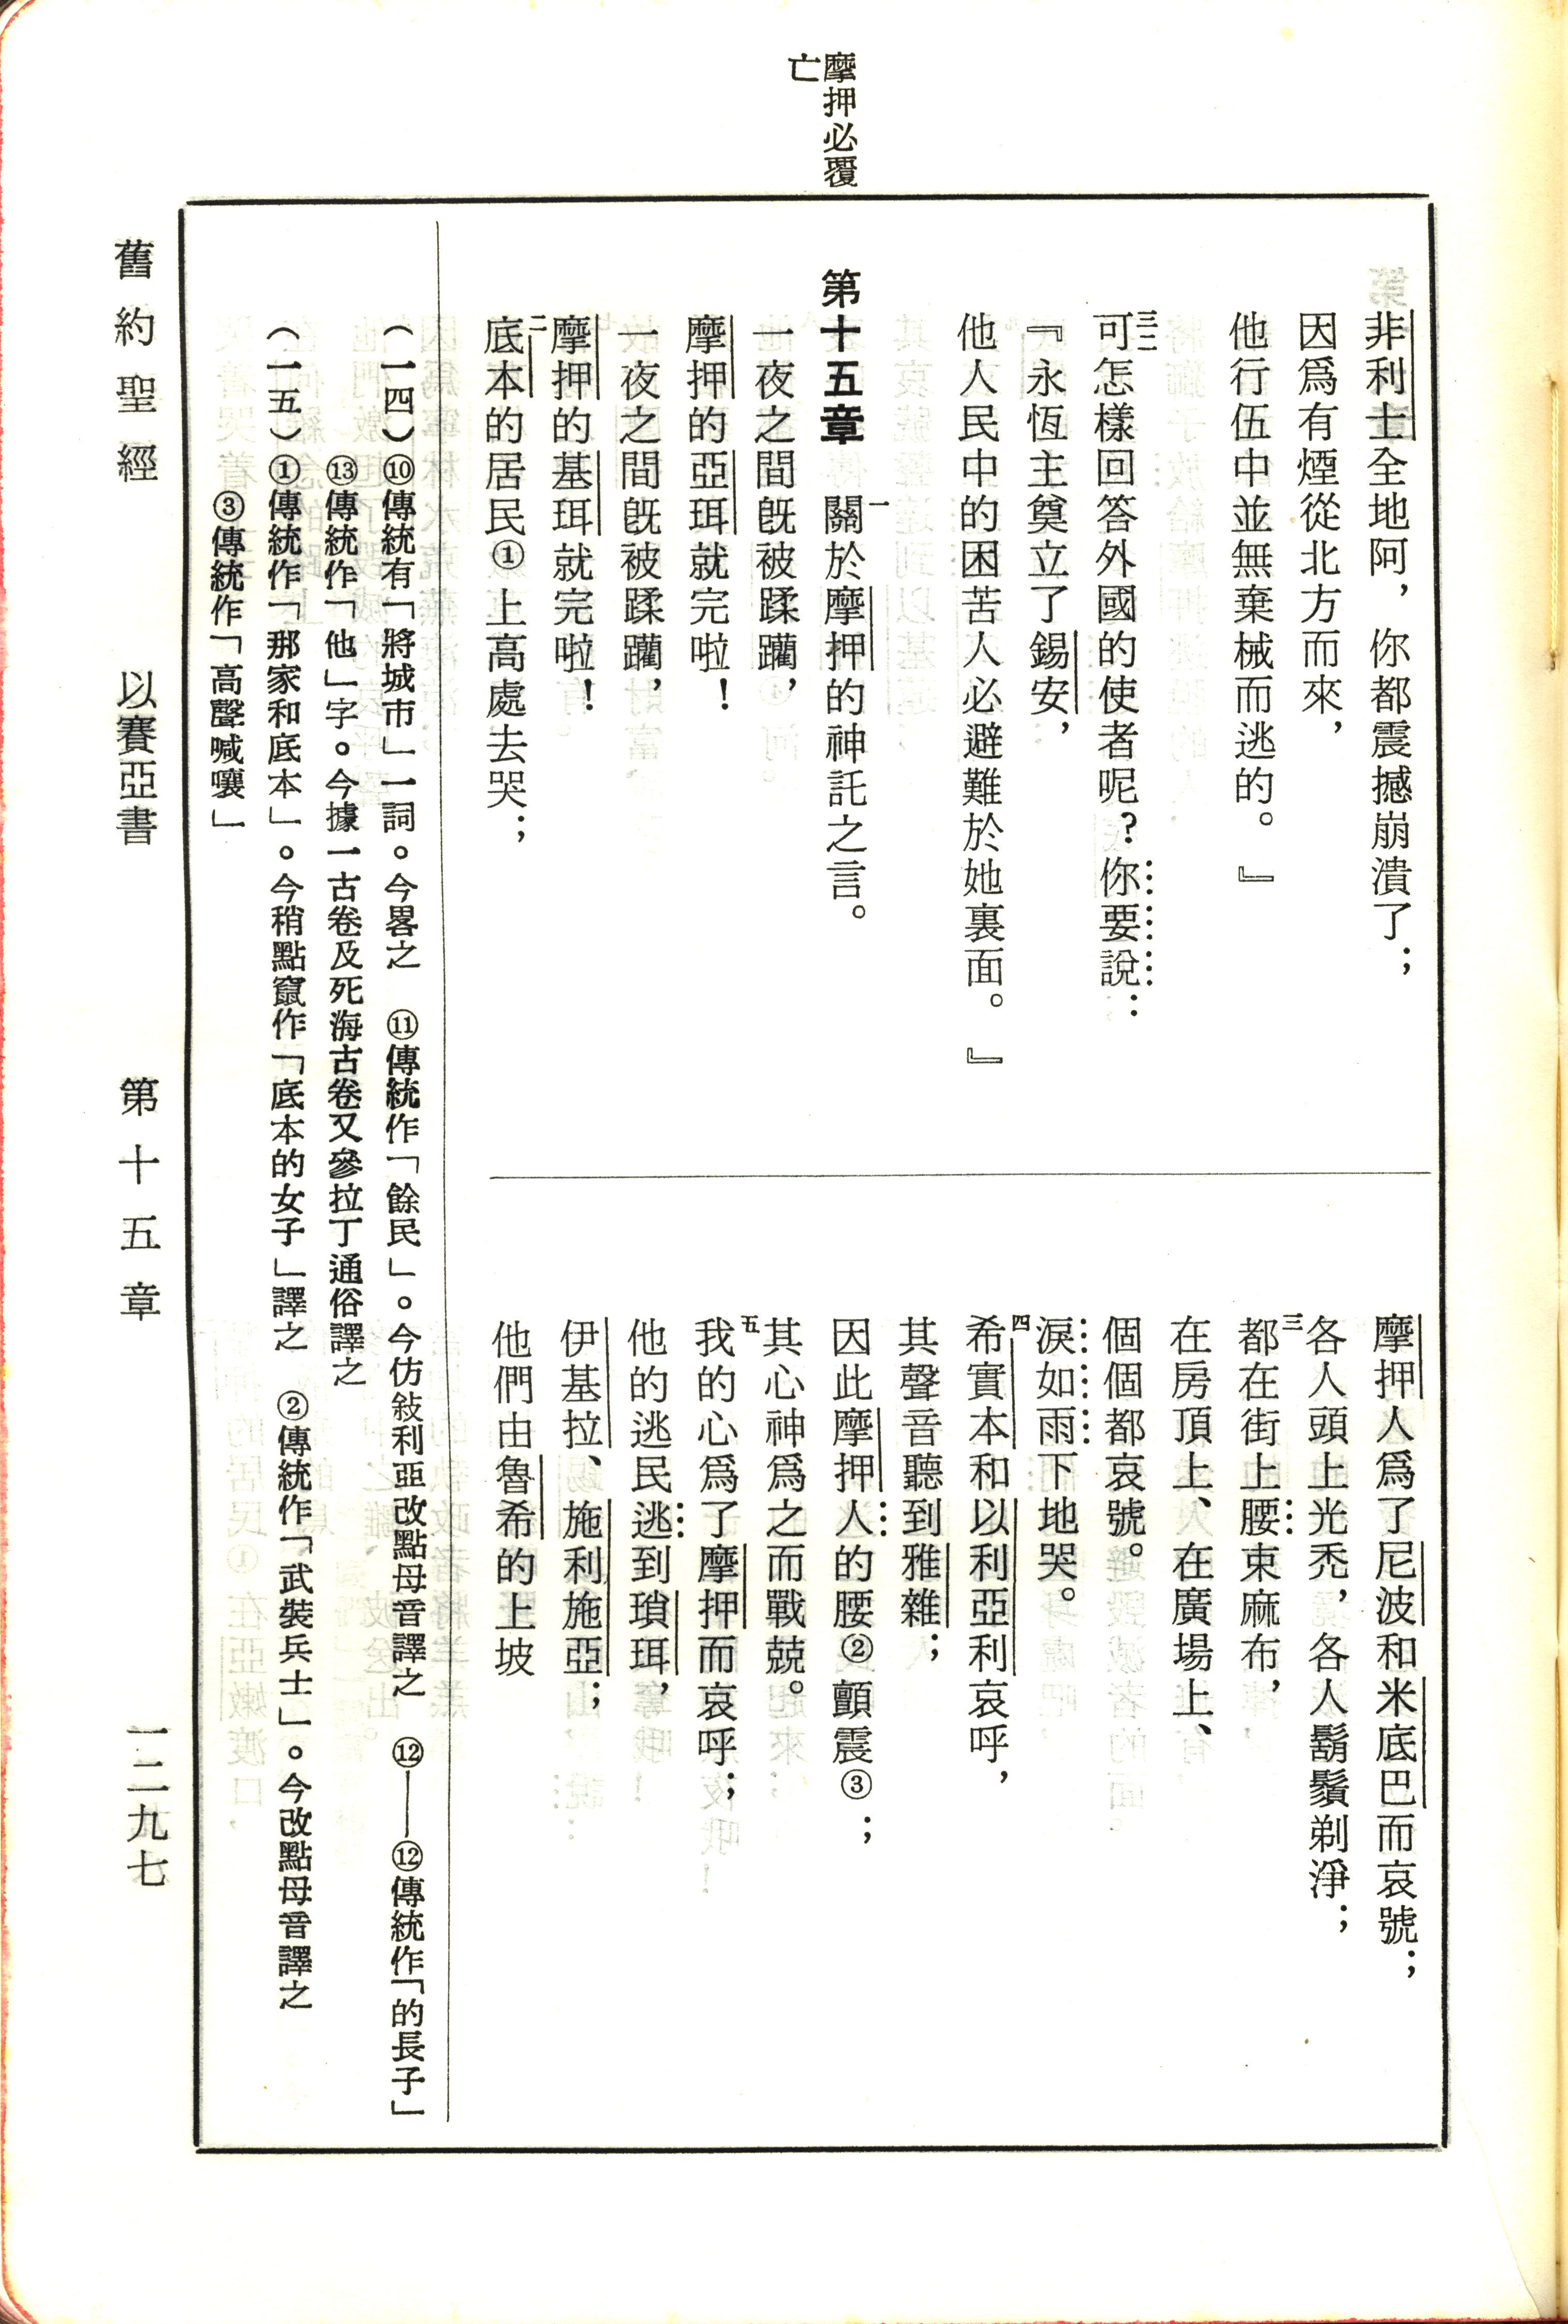 摩押必覆
亡
非利士全地阿，你都震撼崩潰了；
因爲有煙從北方而來，
他行伍中並無棄械而逃的。』
三二可怎樣回答外國的使者呢？你要說：
『永恆主奠立了錫安，
他人民中的困苦人必避難於她裏面。』
第十五章　一關於摩押的神託之言。
一夜之間旣被蹂躪，
摩押的亞珥就完啦！
一夜之間旣被蹂躪，
摩押的基珥就完啦！
二底本的居民①上高處去哭；
摩押人爲了尼波和米底巴而哀號；
各人頭上光禿，各人鬍鬚剃淨；
三都在街上腰束麻布，
在房頂上、在廣場上、
個個都哀號。
淚如雨下地哭。
四希實本和以利亞利哀呼，
其聲音聽到雅雜；
因此摩押人的腰②顫震③；
其心神爲之而戰兢。
五我的心爲了摩押而哀呼；
他的逃民逃到瑣珥，
伊基拉、施利施亞；
他們由魯希的上坡
（一四）⑩傳統有「將城市」一詞。今畧之　⑪傳統作「餘民」。今仿敍利亞改點母音譯之　⑫——⑫傳統作「的長子」
⑬傳統作「他」字。今據一古卷及死海古卷又參拉丁通俗譯之
（一五）①傳統作「那家和底本」。今稍點竄作「底本的女子」譯之　②傳統作「武裝兵士」。今改點母音譯之
③傳統作「高聲喊嚷」
舊約聖經　以賽亞書　第十五章　一二九七